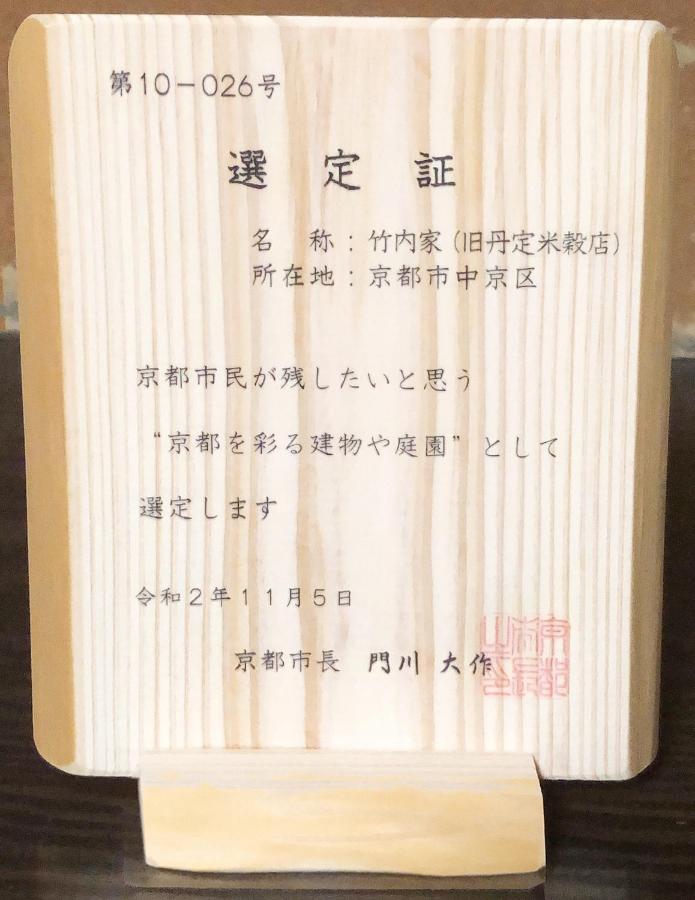 第10－026号
選定証
名　称：竹内家（旧丹定米穀店）
所在地：京都市中京区
京都市民が残したいと思う
“京都を彩る建物や庭園”として
選定します
令和２年１１月５日
京都市長　門川 大作
京都市長之印